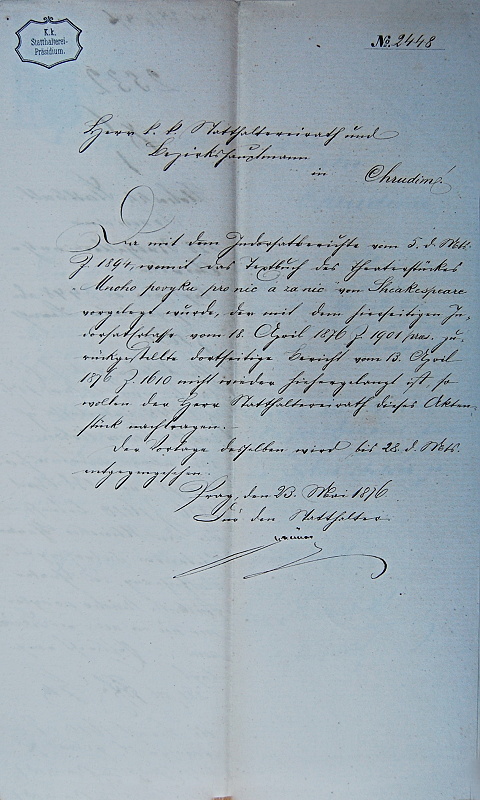 K. k.
Statthalterei-
Präsidium.
No. 2448
Herr k. k. Statthaltereirath und
Bezirkshauptmann
in Chrudim!
Da mit dem Indorsatberichte vom 5. d. Mts.
Z. 1894, womit das Textbuch des Theaterstückes
Mnoho povyku pro nic a za nic von Sheakespeare
vorgelegt wurde, der mit dem hierseitigen In-
dorsaterlasse vom 18. April 1876 Z 1901 praes. zu-
rückgestellte dortseitige Bericht vom 13. April
1876 Z. 1610 nicht wieder hiehergelangt ist, so
wollen der Herr Statthaltereirath dieses Akten-
stück nachtragen.
Der Vorlage desselben wird bis 28. d. Mts.
entgegengesehen.
Prag, den 23. Mai 1876.
Für den Statthalter